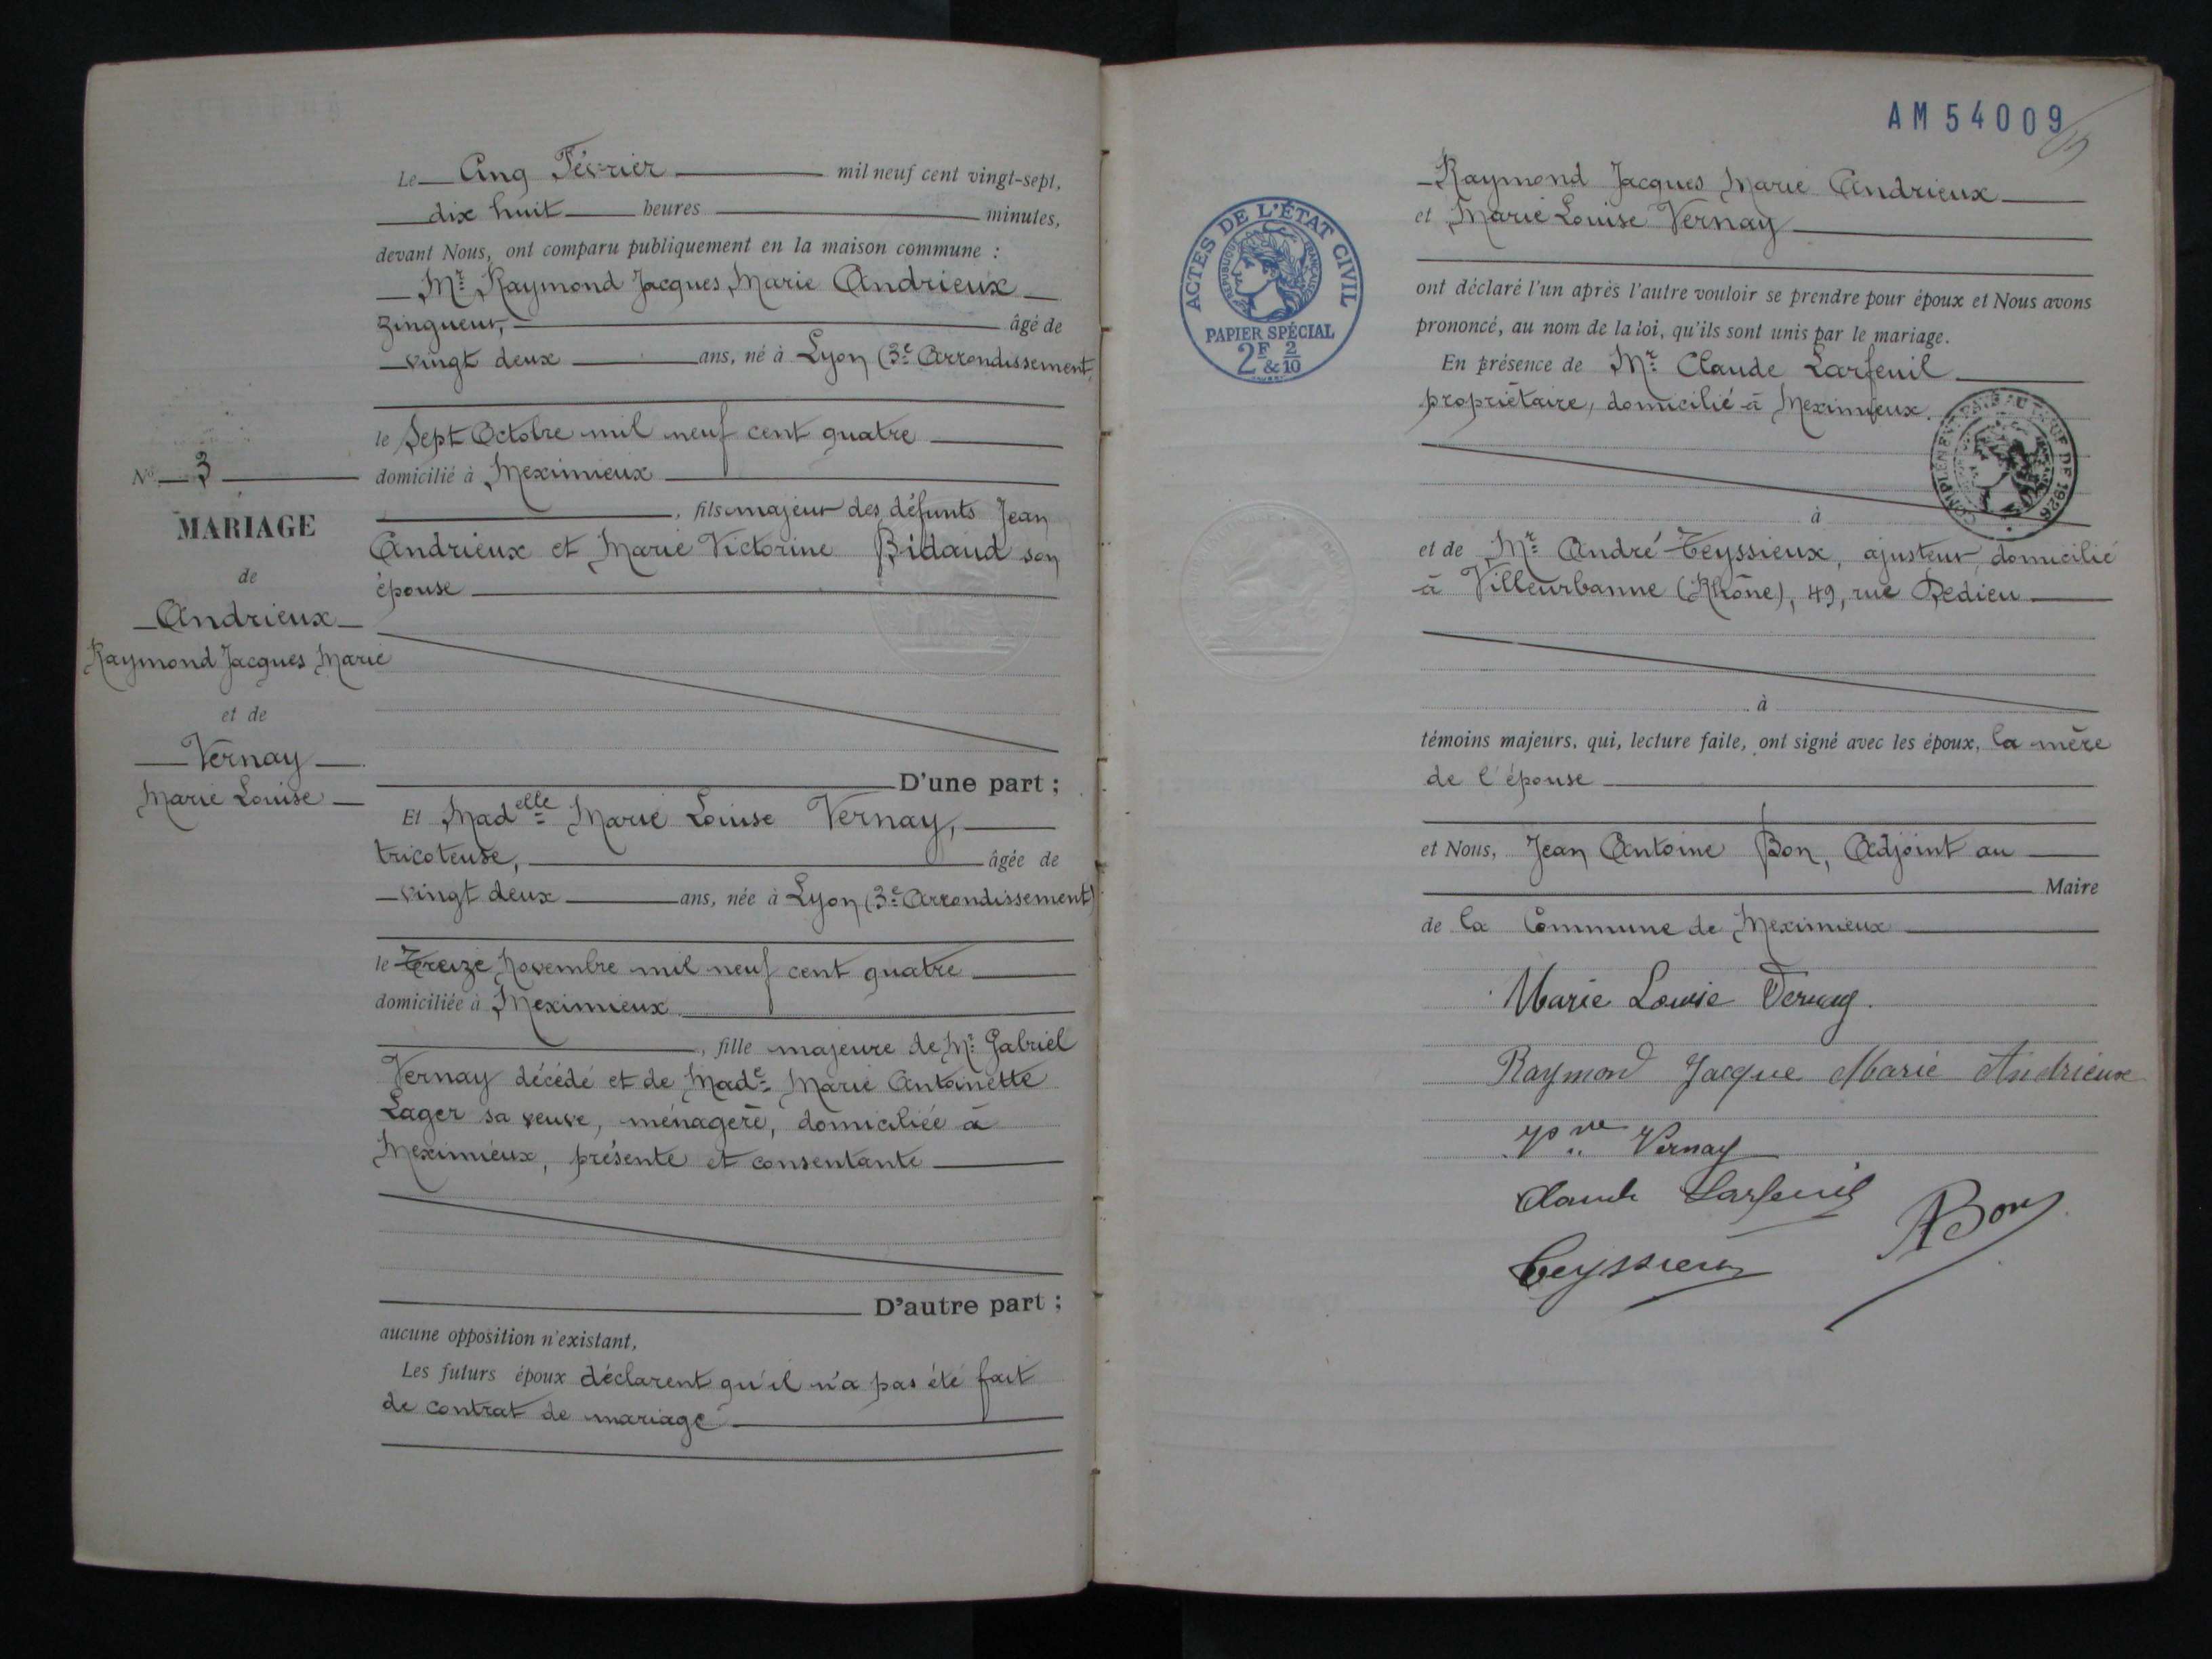 Le Cinq Février mil neuf cent vingt-sept,
dix huit heures minutes,
devant Nous, ont comparu publiquement en la maison commune :
Mr Raymond Jacques Marie Andrieux
zingueur, âgé de
vingt deux ans, né à Lyon (3e Arrondissement,
le Sept Octobre mil neuf cent quatre
domicilié à Meximieux
, fils majeur des défunts Jean
Andrieux et Marie Victorine Bidaud son
épouse
D'une part ;
Et Madelle Marie Louise Vernay,
tricoteuse, âgée de
vingt deux ans, née à Lyon (3e Arrondissement)
le Treize Novembre mil neuf cent quatre
domiciliée à Meximieux
, fille majeure de Mr Gabriel
Vernay décédé et de Made Marie Antoinette
Lager sa veuve, ménagère, domiciliée à
Meximieux, présente et consentante
D'autre part ;
aucune opposition n'existant,
Les futurs époux déclarent qu'il n'a pas été fait
de contrat de mariage
No 3
MARIAGE
de
Andrieux
Raymond Jacques Marie
et de
Vernay
Marie Louise
AM 54009
ACTES DE L'ÉTAT CIVIL
RÉPUBLIQUE FRANÇAISE
PAPIER SPÉCIAL
2F & 2/10
Raymond Jacques Marie Andrieux
et Marie Louise Vernay
ont déclaré l'un après l'autre vouloir se prendre pour époux et Nous avons
prononcé, au nom de la loi, qu'ils sont unis par le mariage.
En présence de Mr Claude Larfeuil
propriétaire, domicilié à Meximieux.
DE 1926
à
et de Mr André Teyssieux, ajusteur, domicilié
à Villeurbanne (Rhône), 49, rue Dedieu
à
témoins majeurs, qui, lecture faite, ont signé avec les époux, la mère
de l'épouse
et Nous, Jean Antoine Bon, Adjoint au
Maire
de la Commune de Meximieux
Marie Louise Vernay.
Raymond Jacque Marie Andrieux
Vve Vernay
Claude Larfeuil
Teyssieux
ABon